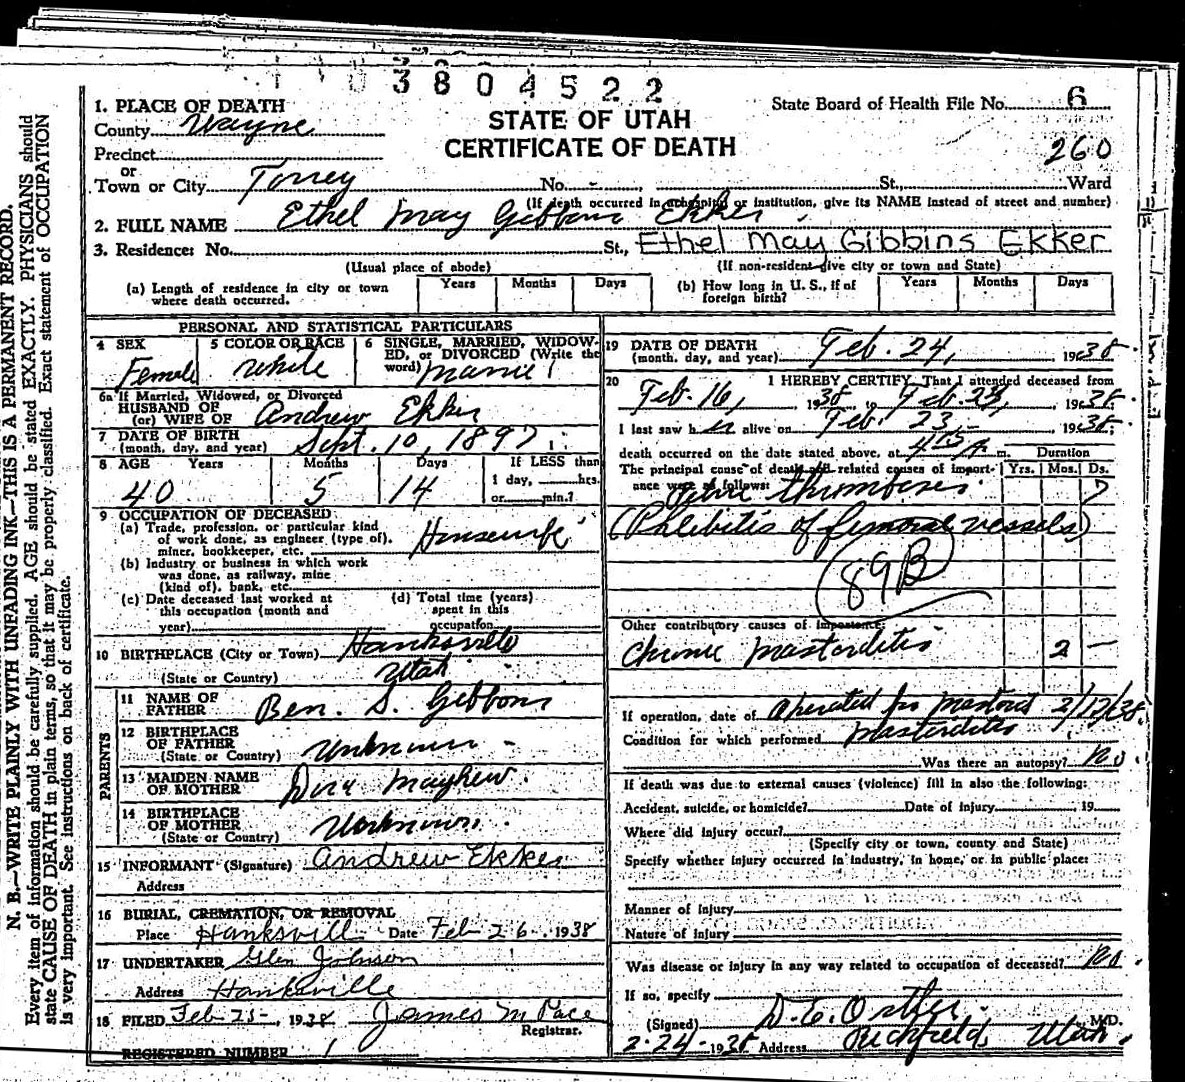 3804522
State Board of Health File No. 6
260
STATE OF UTAH
CERTIFICATE OF DEATH
1. PLACE OF DEATH
County Wayne
Precinct
or
Town or City Torrey No. - , St., Ward
(If death occurred in a hospital or institution, give its NAME instead of street and number)
2. FULL NAME Ethel May Gibbons Ekker
3. Residence: No. St., Ethel May Gibbins Ekker
(Usual place of abode) (If non-resident give city or town and State)
(a) Length of residence in city or town where death occurred. Years Months Days
(b) How long in U. S., if of foreign birth? Years Months Days
PERSONAL AND STATISTICAL PARTICULARS
4 SEX Female
5 COLOR OR RACE White
6 SINGLE, MARRIED, WIDOWED, or DIVORCED (Write the word) Married
6a If Married, Widowed, or Divorced
HUSBAND OF
(or) WIFE OF Andrew Ekker
7 DATE OF BIRTH
(month, day, and year) Sept. 10, 1897
8 AGE Years Months Days If LESS than
40 5 14 1 day, hrs.
or min.?
9 OCCUPATION OF DECEASED
(a) Trade, profession, or particular kind
of work done, as engineer (type of),
miner, bookkeeper, etc. Housewife
(b) Industry or business in which work
was done, as railway, mine
(kind of), bank, etc.
(c) Date deceased last worked at
this occupation (month and
year)
(d) Total time (years)
spent in this
occupation
10 BIRTHPLACE (City or Town) Hanksville
(State or Country) Utah
PARENTS
11 NAME OF
FATHER Ben. S. Gibbons
12 BIRTHPLACE
OF FATHER
(State or Country) Unknown -
13 MAIDEN NAME
OF MOTHER Dora Mayhew.
14 BIRTHPLACE
OF MOTHER
(State or Country) Unknown.
15 INFORMANT (Signature) Andrew Ekker
Address
16 BURIAL, CREMATION, OR REMOVAL
Place Hanksvill Date Feb 26, 1938
17 UNDERTAKER Glen Johnson
Address Hanksville
18 FILED Feb 25-, 1938 James M Pace
Registrar.
REGISTERED NUMBER 1
19 DATE OF DEATH
(month, day, and year) Feb. 24, 1938.
20 I HEREBY CERTIFY, That I attended deceased from
Feb. 16, 1938 to Feb. 23, 1938.
I last saw her alive on Feb. 23, 1938;
death occurred on the date stated above, at 4 15 A m. Duration
The principal cause of death and related causes of importance were as follows: Yrs. Mos. Ds.
thromboses. 7
(Phlebitis of femoral vessels)
89B
Other contributory causes of importance:
Chronic Mastoiditis 2 -
If operation, date of Operated for Mastoid 2/17/38.
Condition for which performed Mastoiditis
Was there an autopsy? No.
If death was due to external causes (violence) fill in also the following:
Accident, suicide, or homicide? Date of injury 19
Where did injury occur?
(Specify city or town, county and State)
Specify whether injury occurred in industry, in home, or in public place:
Manner of injury
Nature of injury
Was disease or injury in any way related to occupation of deceased? No.
If so, specify
(Signed) D. E. Ostler. M.D.
2-24-1938 Address Richfield, Utah.
N. B.—WRITE PLAINLY WITH UNFADING INK—THIS IS A PERMANENT RECORD.
Every item of information should be carefully supplied. AGE should be stated EXACTLY. PHYSICIANS should
state CAUSE OF DEATH in plain terms, so that it may be properly classified. Exact statement of OCCUPATION
is very important. See instructions on back of certificate.